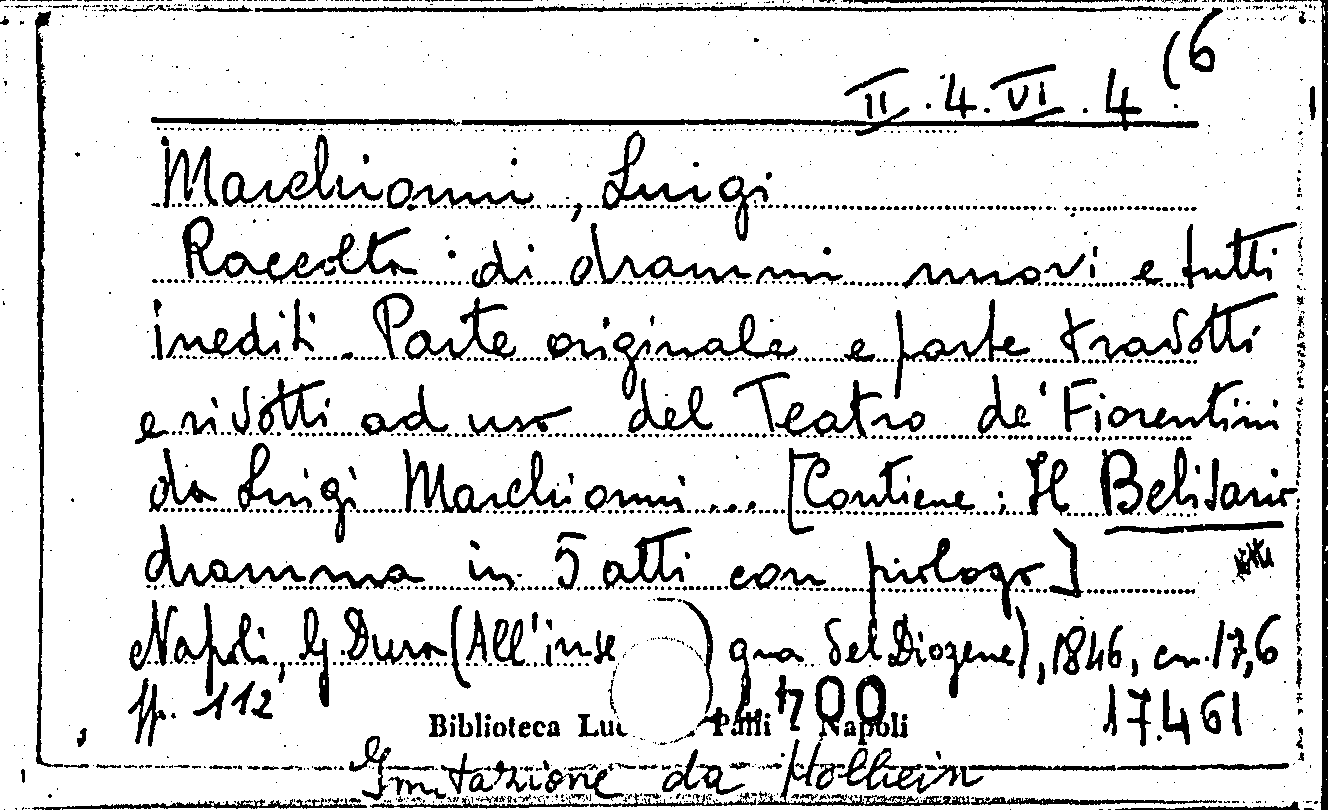 II.4.VI.4 (6
Marchionni, Luigi
Raccolta di drammi nuovi e tutti
inediti. Parte originale e parte tradotti
e ridotti ad uso del Teatro de' Fiorentini
da Luigi Marchionni... [Contiene: Il Belisario
dramma in 5 atti con prologo]
Napoli, G. Dura (All'inse gna del Diogene), 1846, cm. 17,6
pp. 112 17.461
Biblioteca Palli Napoli
Imitazione da Holbein